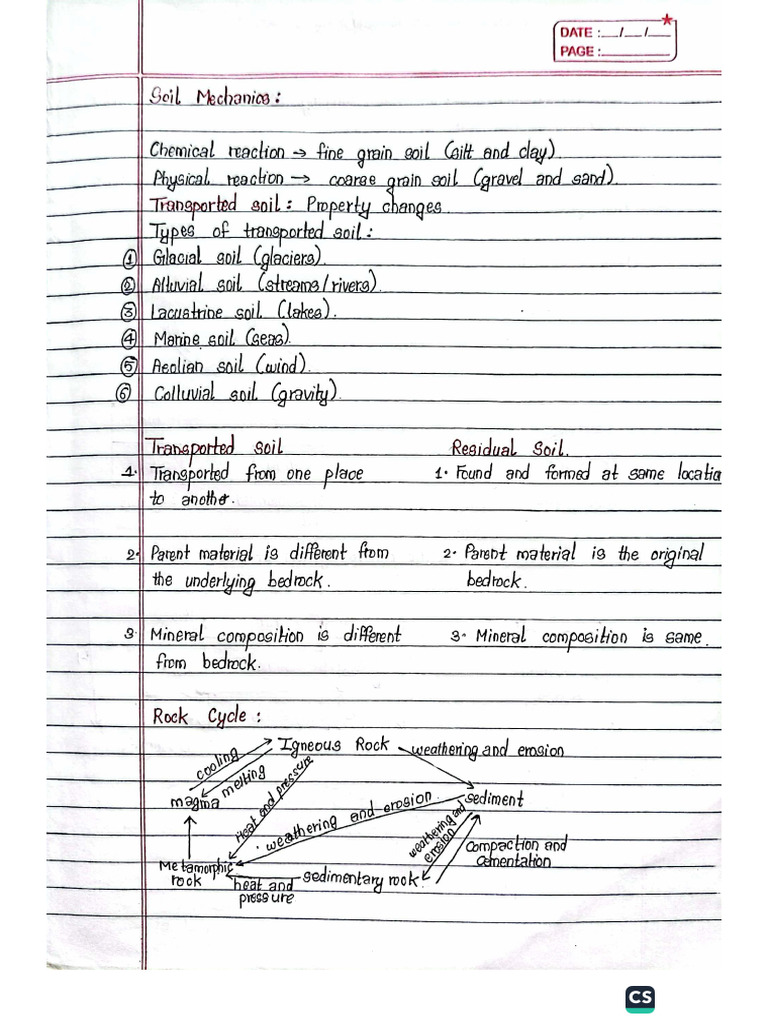 DATE :__/__/__
PAGE :______
Soil Mechanics :
Chemical reaction → fine grain soil (silt and clay)
Physical reaction → coarse grain soil (gravel and sand).
Transported soil : Property changes.
Types of transported soil :
① Glacial soil (glaciers).
② Alluvial soil (streams/rivers).
③ Lacustrine soil (lakes).
④ Marine soil (seas).
⑤ Aeolian soil (wind).
⑥ Colluvial soil (gravity).
Transported soil Residual Soil.
1. Transported from one place 1. Found and formed at same locatio
to another.
2. Parent material is different from 2. Parent material is the original
the underlying bedrock. bedrock.
3. Mineral composition is different 3. Mineral composition is same.
from bedrock.
Rock Cycle :
Igneous Rock
cooling
melting
weathering and erosion
magma
Heat and pressure
weathering and erosion
sediment
weathering and
erosion
Compaction and
cementation
Metamorphic
rock
heat and
pressure
sedimentary rock
CS